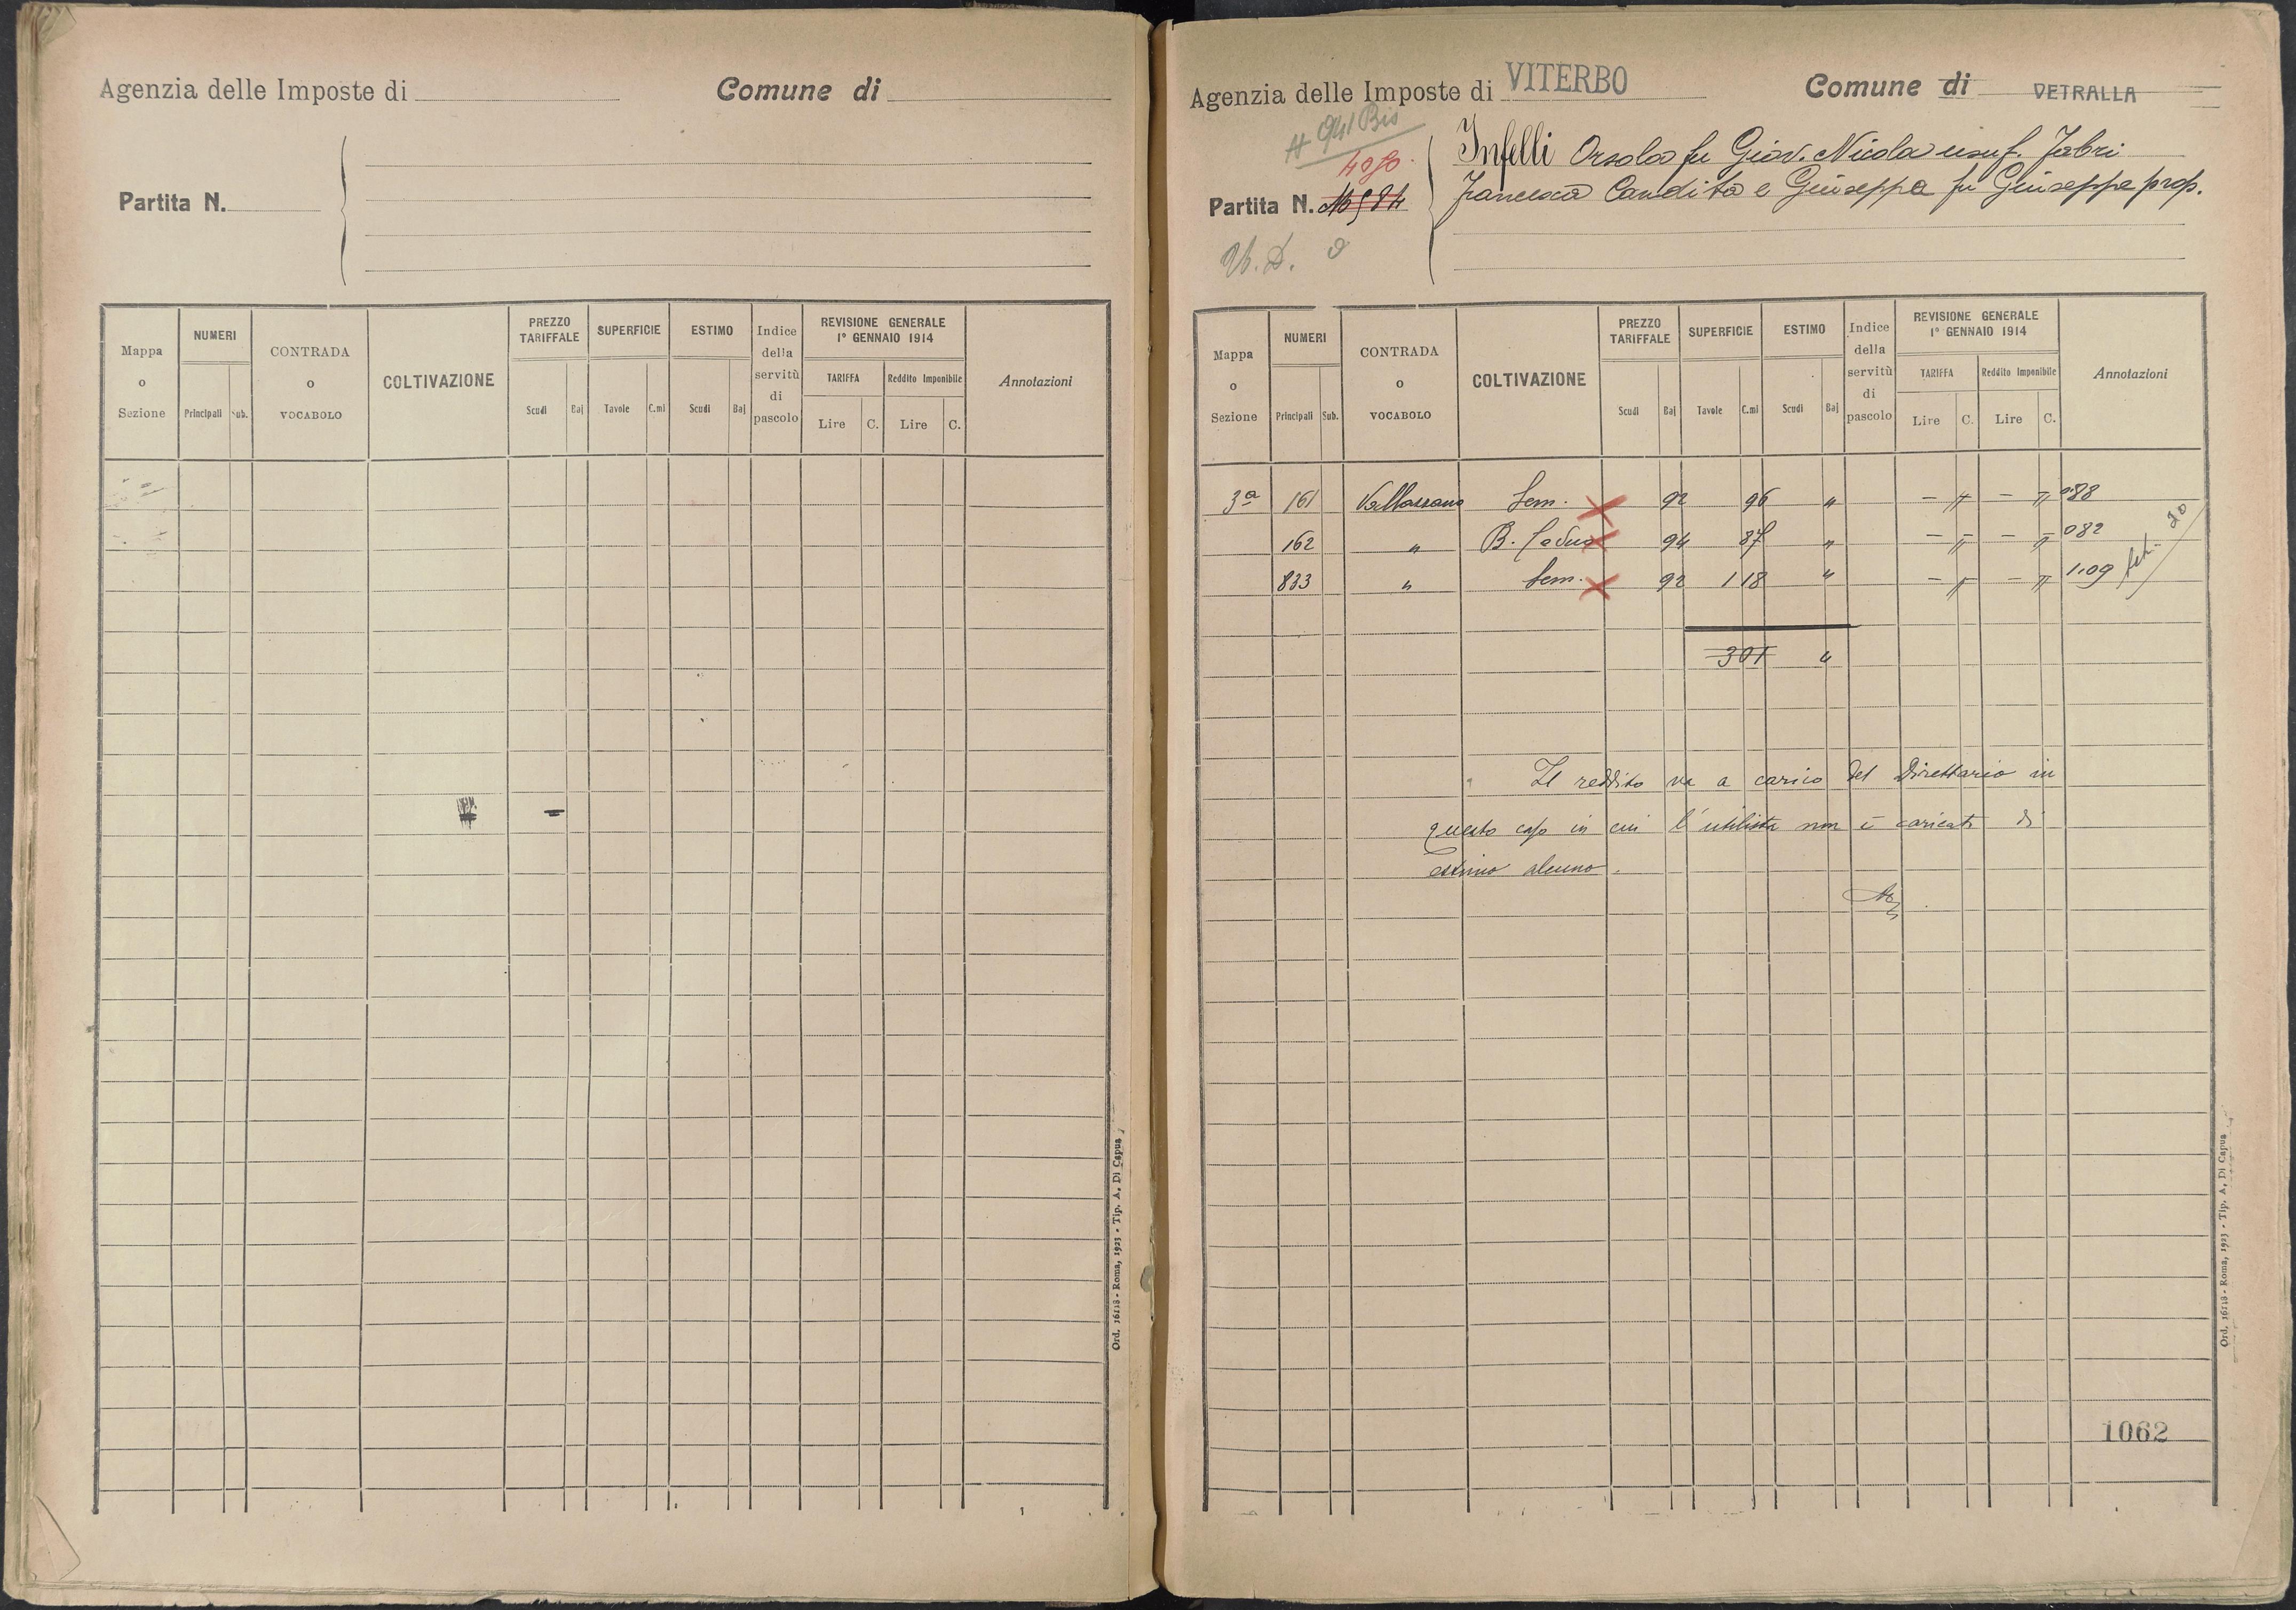 Agenzia delle Imposte di
Comune di
Partita N.
Mappa o Sezione
NUMERI
Principali
Sub.
CONTRADA o VOCABOLO
COLTIVAZIONE
PREZZO TARIFFALE
Scudi
Baj
SUPERFICIE
Tavole
C.mi
ESTIMO
Scudi
Baj
Indice della servitù di pascolo
REVISIONE GENERALE 1° GENNAIO 1914
TARIFFA
Lire
C.
Reddito Imponibile
Lire
C.
Annotazioni
Ord. 16118 - Roma, 1923 - Tip. A. Di Capua
Agenzia delle Imposte di VITERBO
Comune di VETRALLA
941 Bis
Partita N.
Infelli Orsola fu Giov. Nicola usuf. Fabri
Francesca Candita e Giuseppa fu Giuseppe prop.
Mappa o Sezione
NUMERI
Principali
Sub.
CONTRADA o VOCABOLO
COLTIVAZIONE
PREZZO TARIFFALE
Scudi
Baj
SUPERFICIE
Tavole
C.mi
ESTIMO
Scudi
Baj
Indice della servitù di pascolo
REVISIONE GENERALE 1° GENNAIO 1914
TARIFFA
Lire
C.
Reddito Imponibile
Lire
C.
Annotazioni
3ª 161 Sem. 92 96 " – – 088
162 " B. Ceduo 94 87 " – – 082
833 " Sem. 92 1 18 " – – 1.09
301 "
Il reddito va a carico del Direttario in
questo caso in cui l'utilista non è caricato di
estimo alcuno.
1062
Ord. 16118 - Roma, 1923 - Tip. A. Di Capua